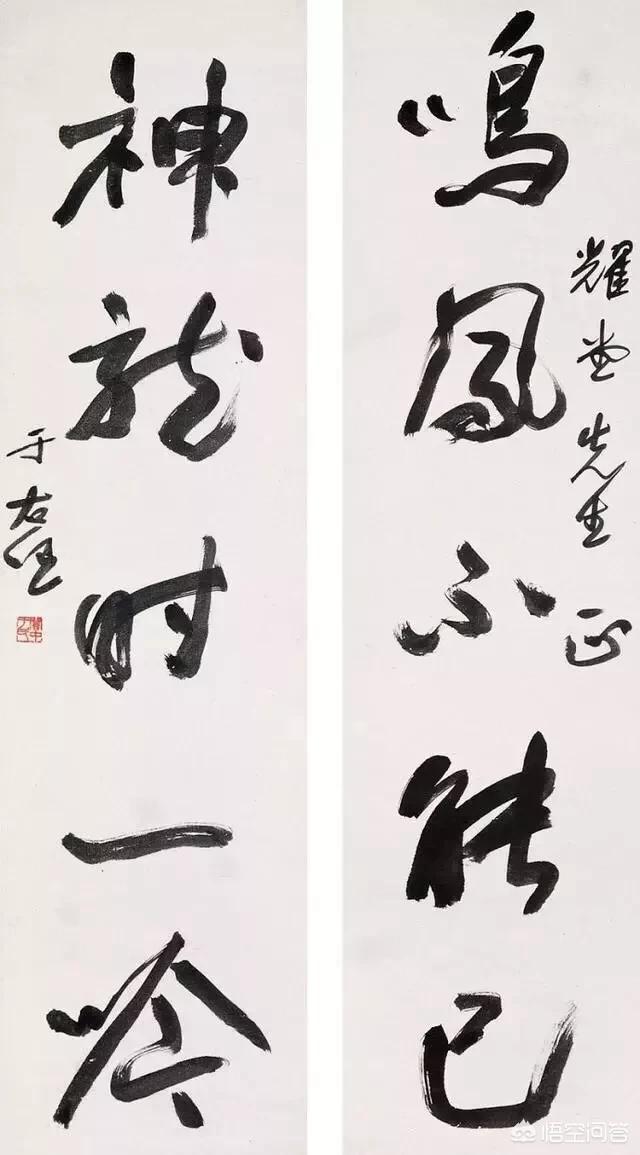 鳴鳳不能已
耀堂先生正
神龍時一吟
于右任
關中于氏
悟空问答